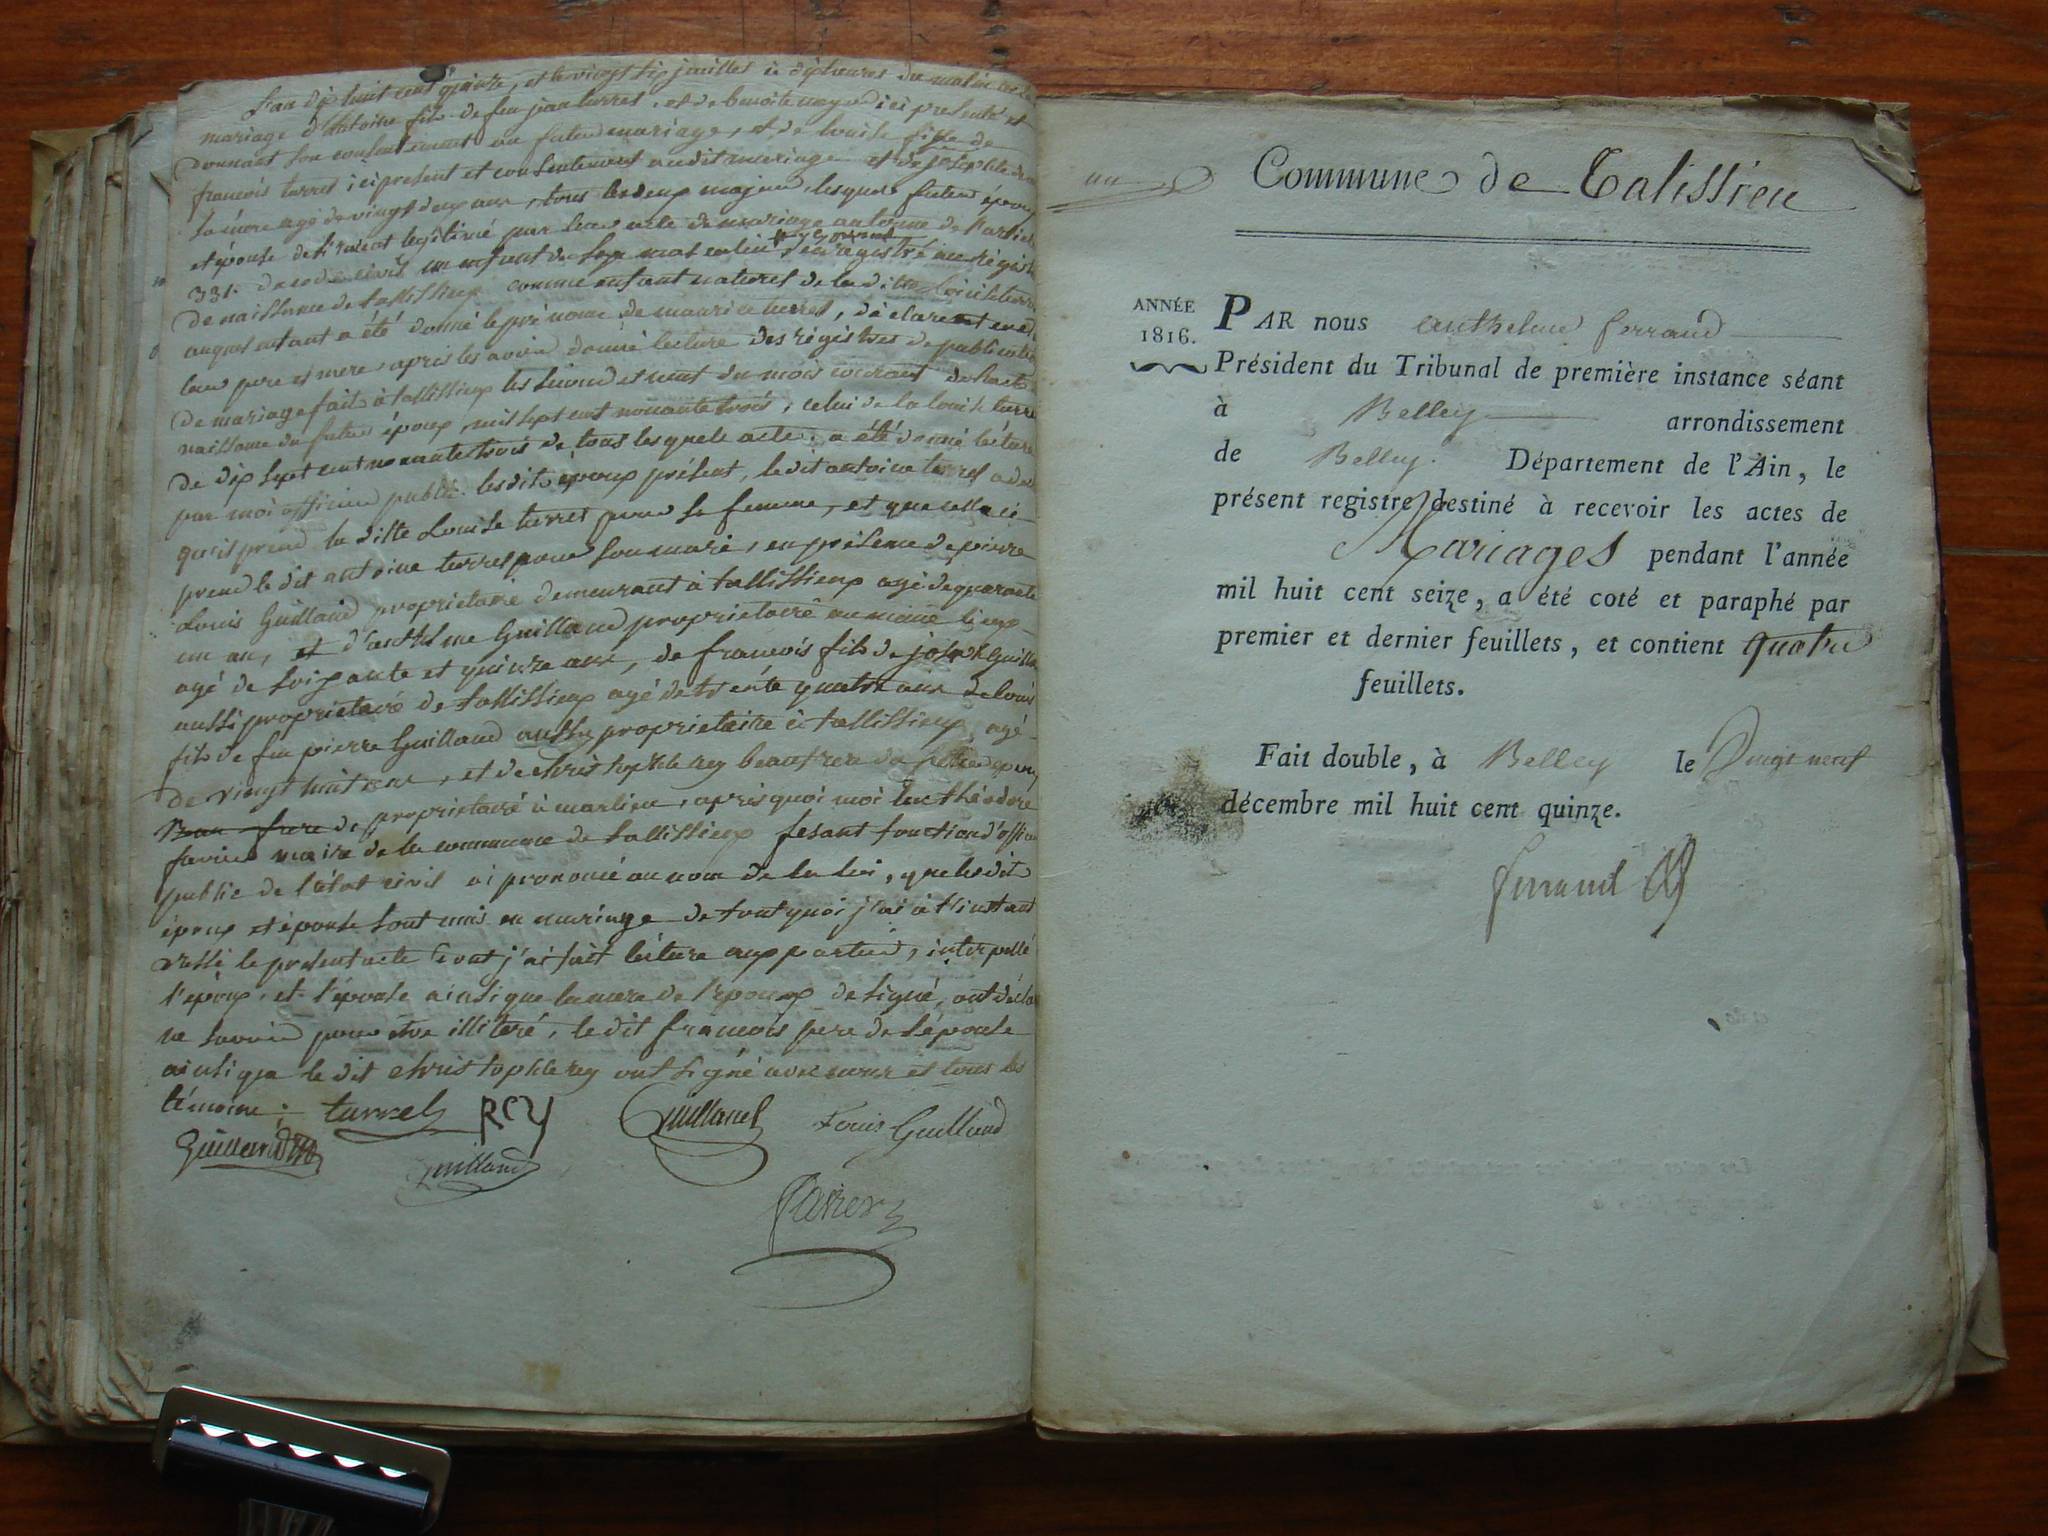 L'an dix huit cent quinze, et le vingt six juillet à dix heures du matin
mariage d'Antoine fils de feu jean turrel, et de benoite ici présente et
donnant son consentement au futur mariage, et de louise fille de
françois turrel ici présent et consentement audit mariage et de josephte
sa mère agé de vingt deux ans, tous les deux majeur, lesquels futur époux
et épouse desireroit legitimé par leur acte de mariage au terme de l'article
331. du code civil un enfant du sexe masculin enregistré au régistre
de naissance de tallissieux comme enfant naturel de la ditte louise turrel
auquel enfant a été donné le prénom de maurice turrel, déclarent
leur pere et mere, après les avoir donné lecture des régistres de publication
de mariage fait à tallissieux les second et neuf du mois courant de l'acte
naissance du futur époux, mil sept cent nonante trois, celui de la louise turrel
de dix sept cent nonante trois de tous lesquels acte, a été donné lecture
par moi officier public. les dits époux présent, le dit antoine turrel a
qu'il prend la ditte Louise turrel pour sa femme, et que celle ci
prend le dit antoine turrel pour son mari, en présence de pierre
Louis Guilland propriétaire demeurant à tallissieux agé de quarante
un an, et d'anthelme Guilland propriétaire au même lieux
agé de soixante et quinze ans, de françois fils de joseph Guilland
aussi propriétaire de tallissieux agé de trente quatre ans de louis
fils de feu pierre Guilland aussi propriétaire à tallissieux, agé
de vingt huit ans, et de christophle rey beaufrere du futur époux
Beau frere de propriétaire à marlieu, après quoi moi luc théodore
favier maire de la commune de tallissieux fesant fonction d'officier
public de l'état civil ai prononcé au nom de la loi, que les dit
époux et épouse sont unis en mariage de tout quoi j'ai à l'instant
rédigé le présent acte dont j'ai fait lecture aux parties, interpellé
l'époux, et l'épouse ainsi que la mere de l'époux de signé, ont déclaré
ne savoir pour être illiteré, le dit françois pere de l'épouse
ainsi que le dit christophle rey ont signé avec nous et tous les
témoins. turrel REY Guilland Louis Guilland
Guilland
Guilland
favier
un
Commune de Talissieu
ANNÉE
1816.
PAR nous anthelme ferrand
Président du Tribunal de première instance séant
à Belley arrondissement
de Belley. Département de l'Ain, le
présent registre destiné à recevoir les actes de
Mariages pendant l'année
mil huit cent seize, a été coté et paraphé par
premier et dernier feuillets, et contient quatre
feuillets.
Fait double, à Belley le Vingt neuf
décembre mil huit cent quinze.
ferrand